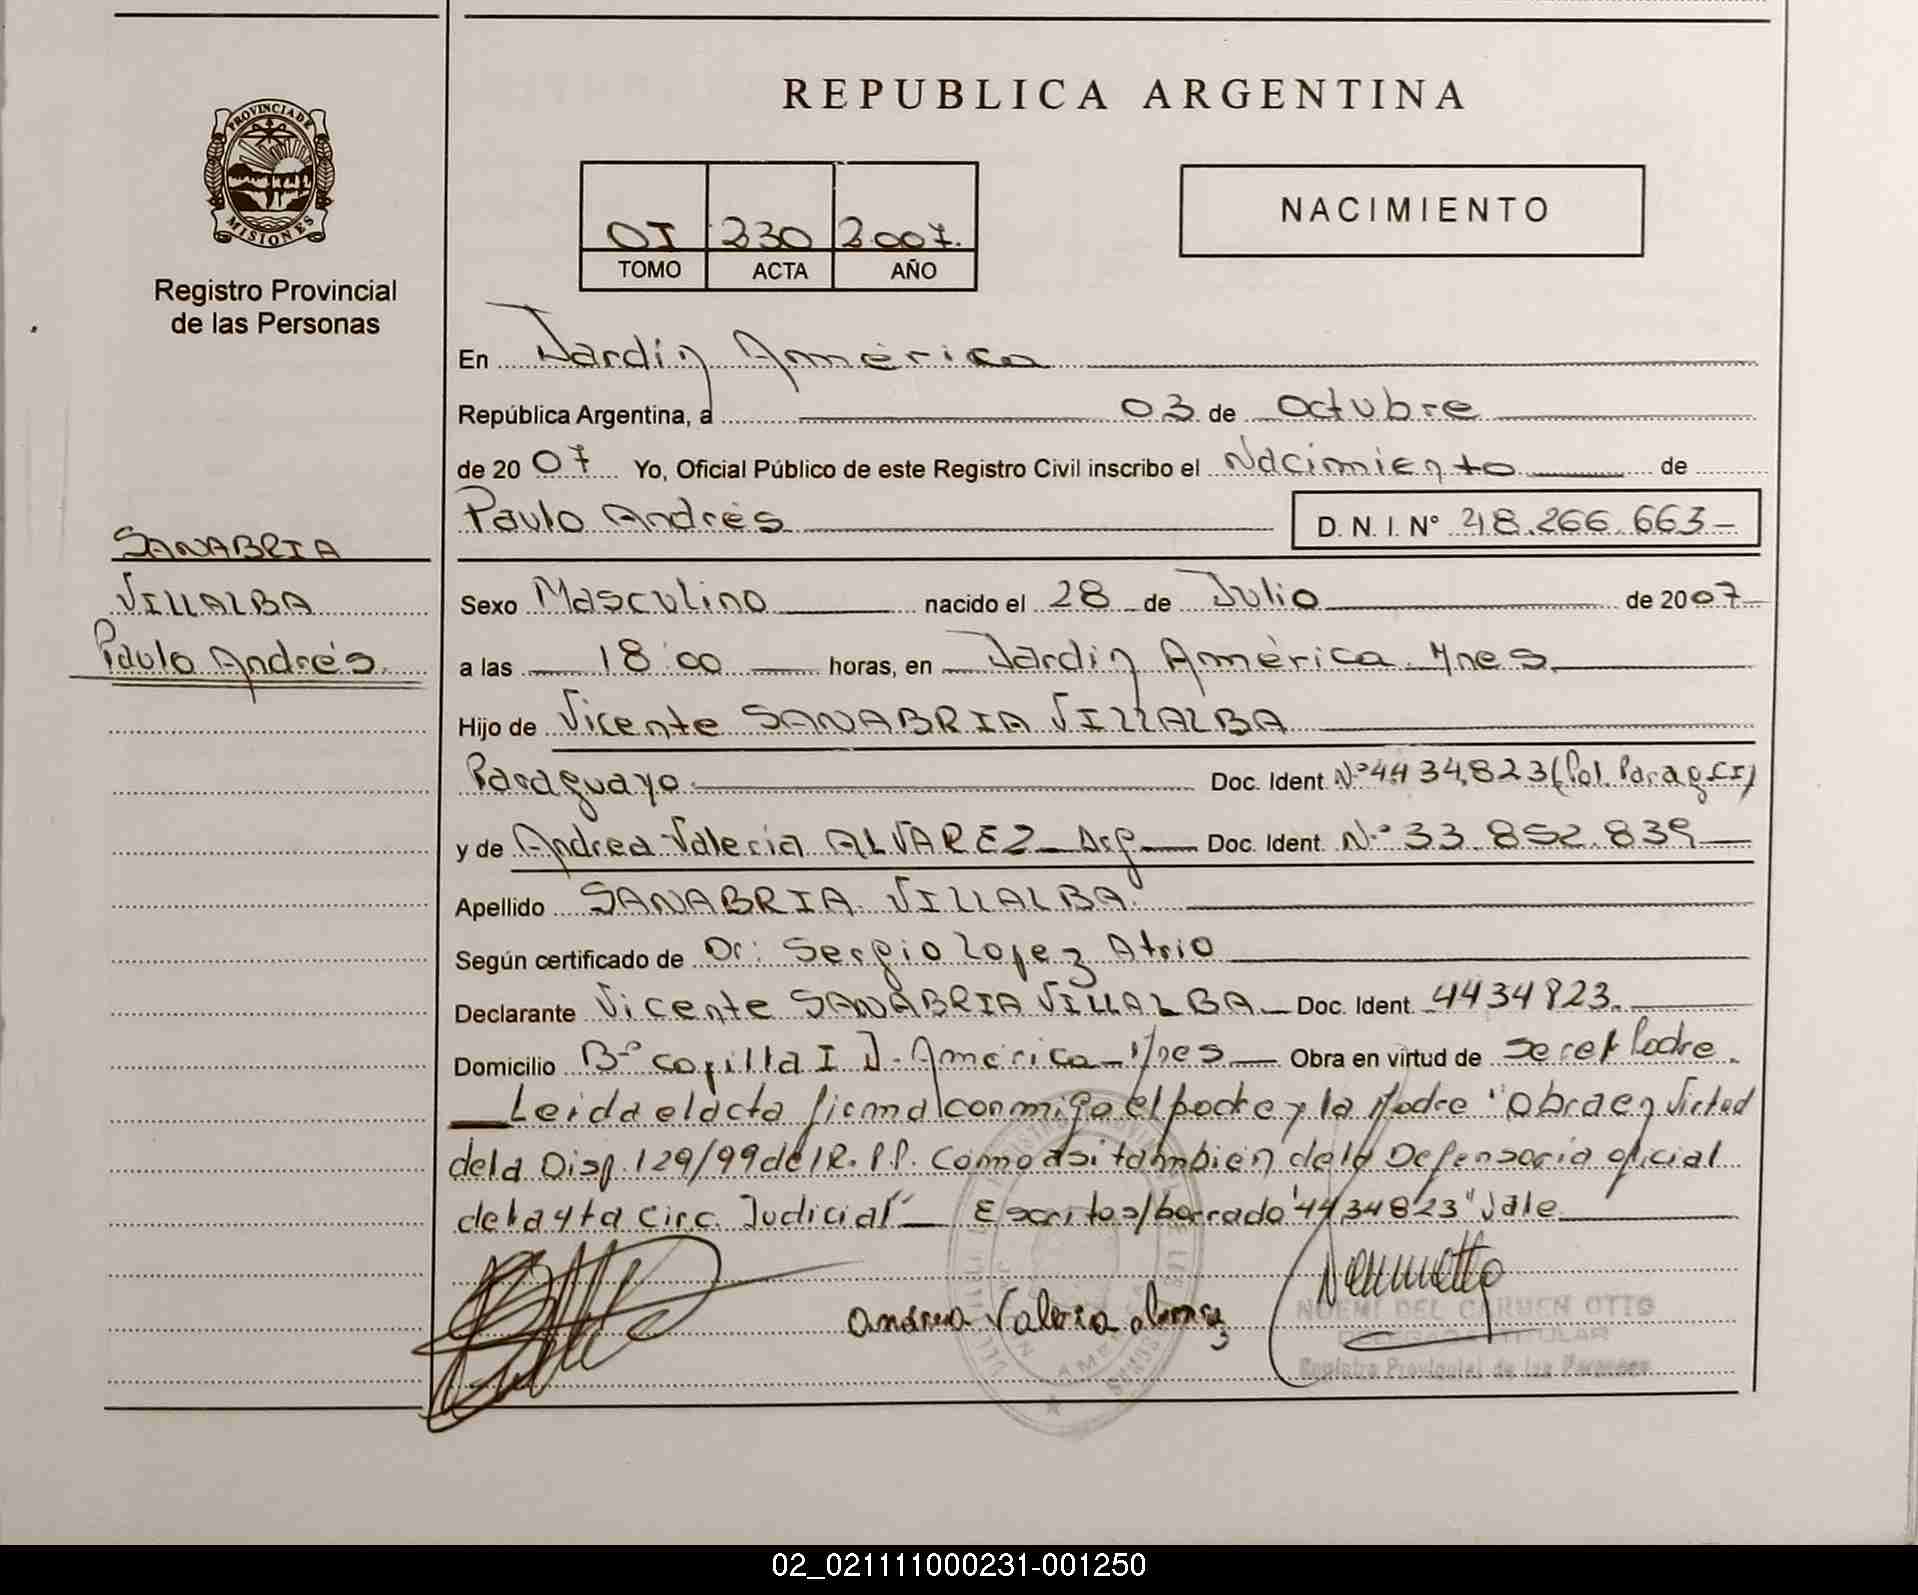 REPUBLICA ARGENTINA
PROVINCIA DE
MISIONES
Registro Provincial
de las Personas
01 230 2007.
TOMO ACTA AÑO
NACIMIENTO
En Jardín América
República Argentina, a 03 de Octubre
de 20 07 Yo, Oficial Público de este Registro Civil inscribo el Nacimiento de
Paulo Andrés D. N. I. N° 48.266.663-
SANABRIA
VILLALBA
Paulo Andrés.
Sexo Masculino nacido el 28 de Julio de 2007
a las 18:00 horas, en Jardín América. Mnes.
Hijo de Vicente SANABRIA VILLALBA
Paraguayo Doc. Ident. Nº 4434.823 (Pol. Parag. CI)
y de Andrea Valeria ALVAREZ Arg Doc. Ident. Nº 33.852.839
Apellido SANABRIA VILLALBA.
Según certificado de Dr: Sergio Lopez Atrio
Declarante Vicente SANABRIA VILLALBA Doc. Ident. 4434823.
Domicilio Bº Capilla I J. América Mnes Obra en virtud de ser el Padre.
Leida el acta firma conmigo el padre y la Madre "Obra en Virtud
de la Disp. 129/99 del R.P.P. Como asi tambien de la Defensoria oficial
de la 4ta Circ. Judicial" Escritos/borrado "4434823" Vale
Andrea Valeria Alvarez
NOEMI DEL CARMEN OTTO
DELEGADA TITULAR
Registro Provincial de las Personas
02_021111000231-001250